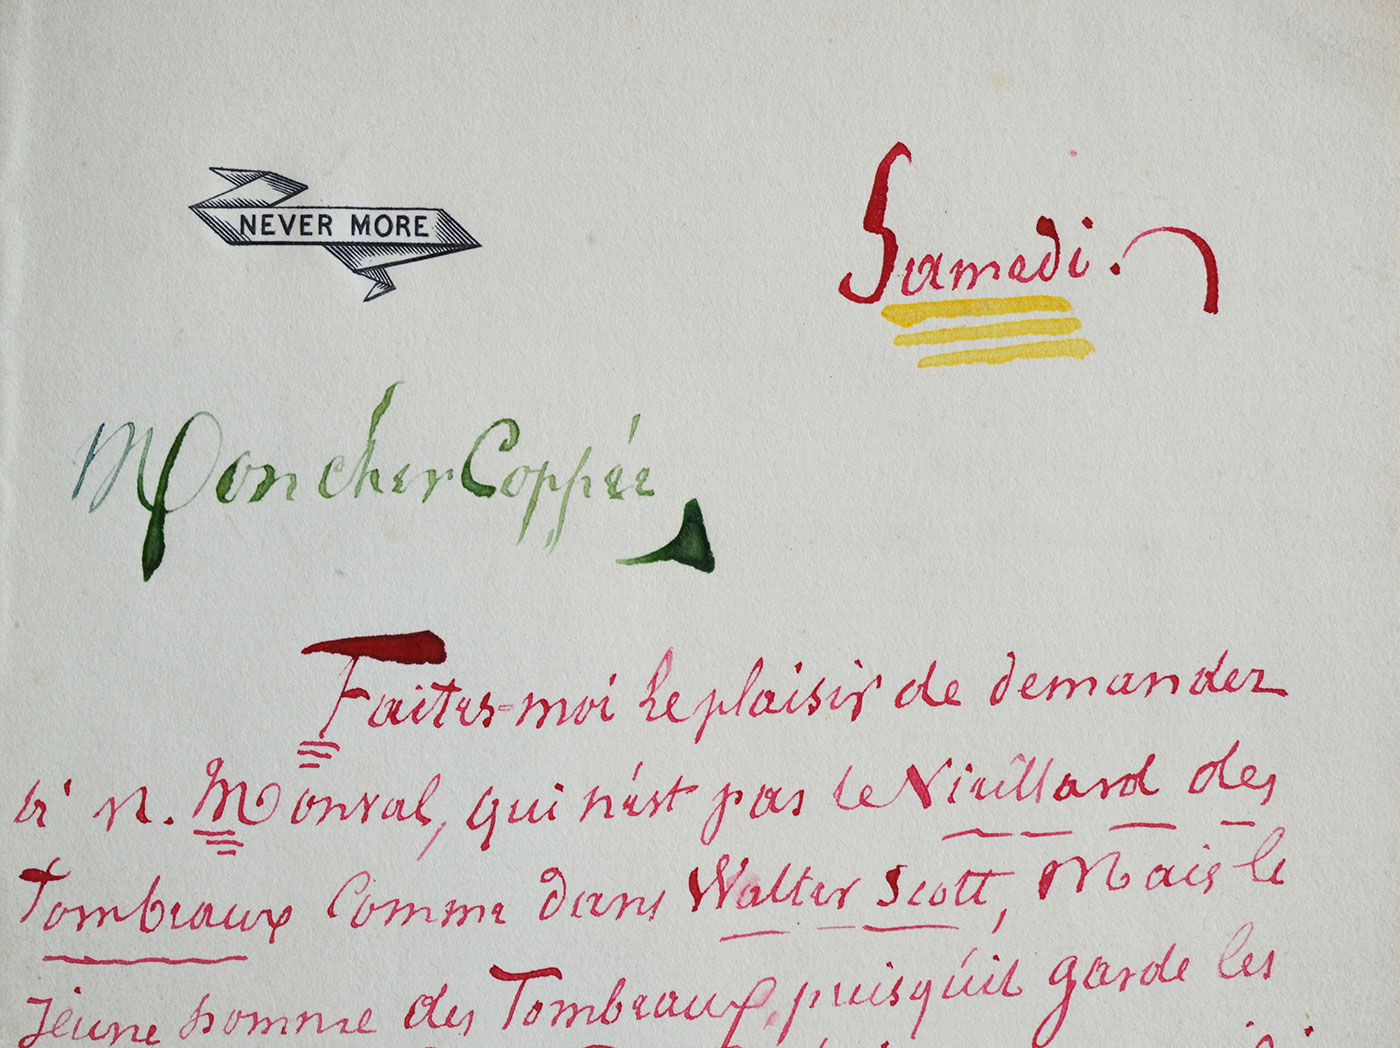 NEVER MORE
Samedi.
Mon cher Coppée
Faites=moi le plaisir de demander
à M. Monval, qui n'est pas le Vieillard des
Tombeaux comme dans Walter Scott, Mais le
jeune homme des Tombeaux, puisqu'il garde les